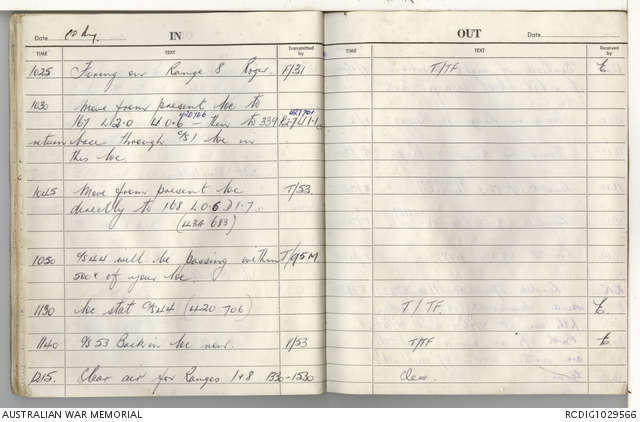 Date IN
TIME TEXT Transmitted by
1025 Firing on Range 8 Roger. F/31
1030 Move from present loc to
420706 427701
167 L2.0 U0.6 - then to 339 R2.7 U1.1
return base through C/S1 loc in
this loc.
1045 Move from present loc T/53
directly to 168 L0.6 D1.7.
(43A 683)
1050 C/S44 will be passing within T/95M
500x of your loc.
1130 loc stat C/S44 (420 706)
1140 C/S 53 Back in loc now. F/53
1215. Clear air for Ranges 1+8 1330-1530
OUT Date
TIME TEXT Received by
T/TF E
T/TF E
T/TF E
Clear.
AUSTRALIAN WAR MEMORIAL RCDIG1029566